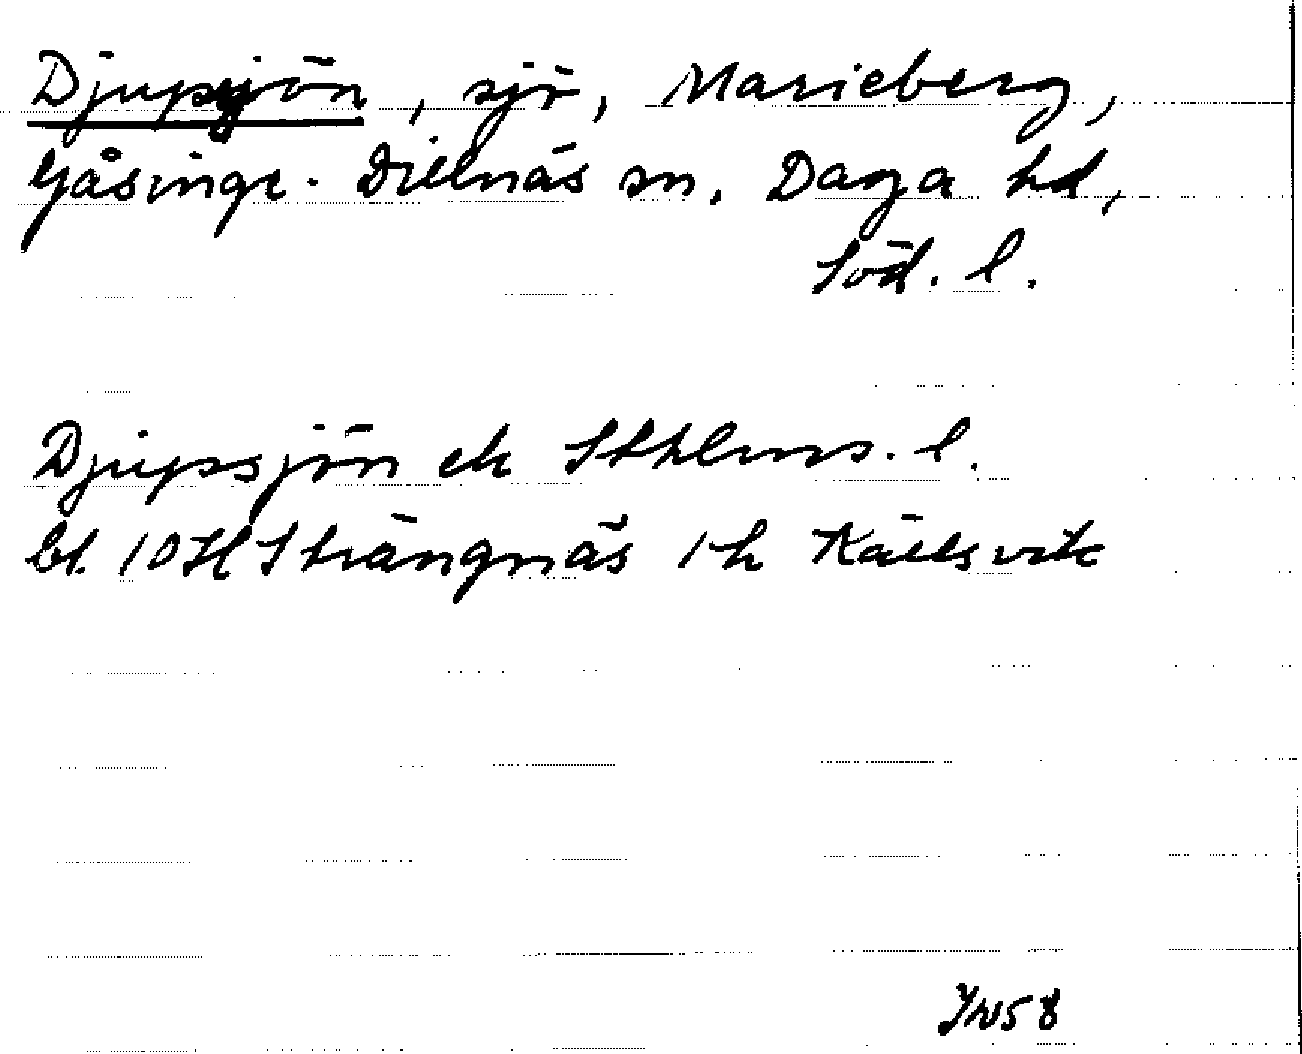 Djupsjön, sjö, Marieberg,
Gåsinge-Dillnäs sn, Daga hd,
Söd. l.
Djupsjön ek Sthlms. l.
bl. 10H Strängnäs 1h Källsvik